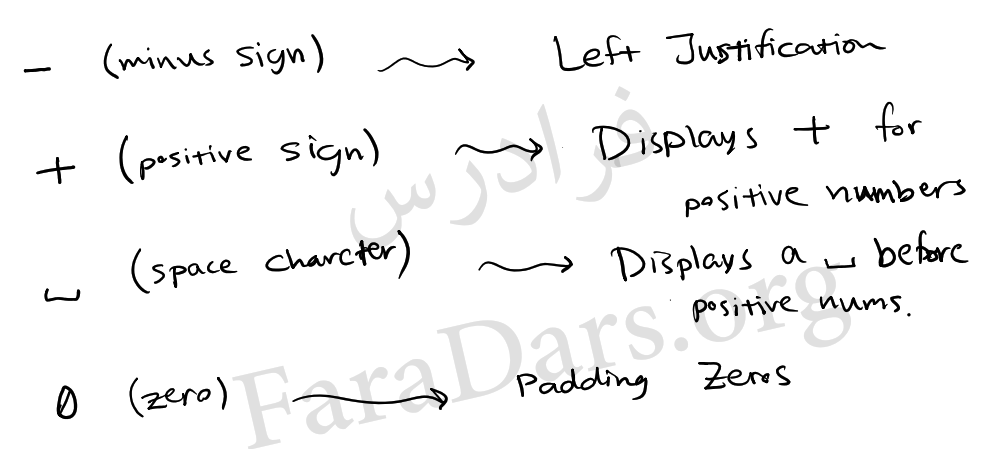 − (minus sign) → Left Justification
+ (positive sign) → Displays + for
positive numbers
␣ (space charcter) → Displays a ␣ before
positive nums.
0 (zero) → Padding Zeros
فرادرس
FaraDars.org